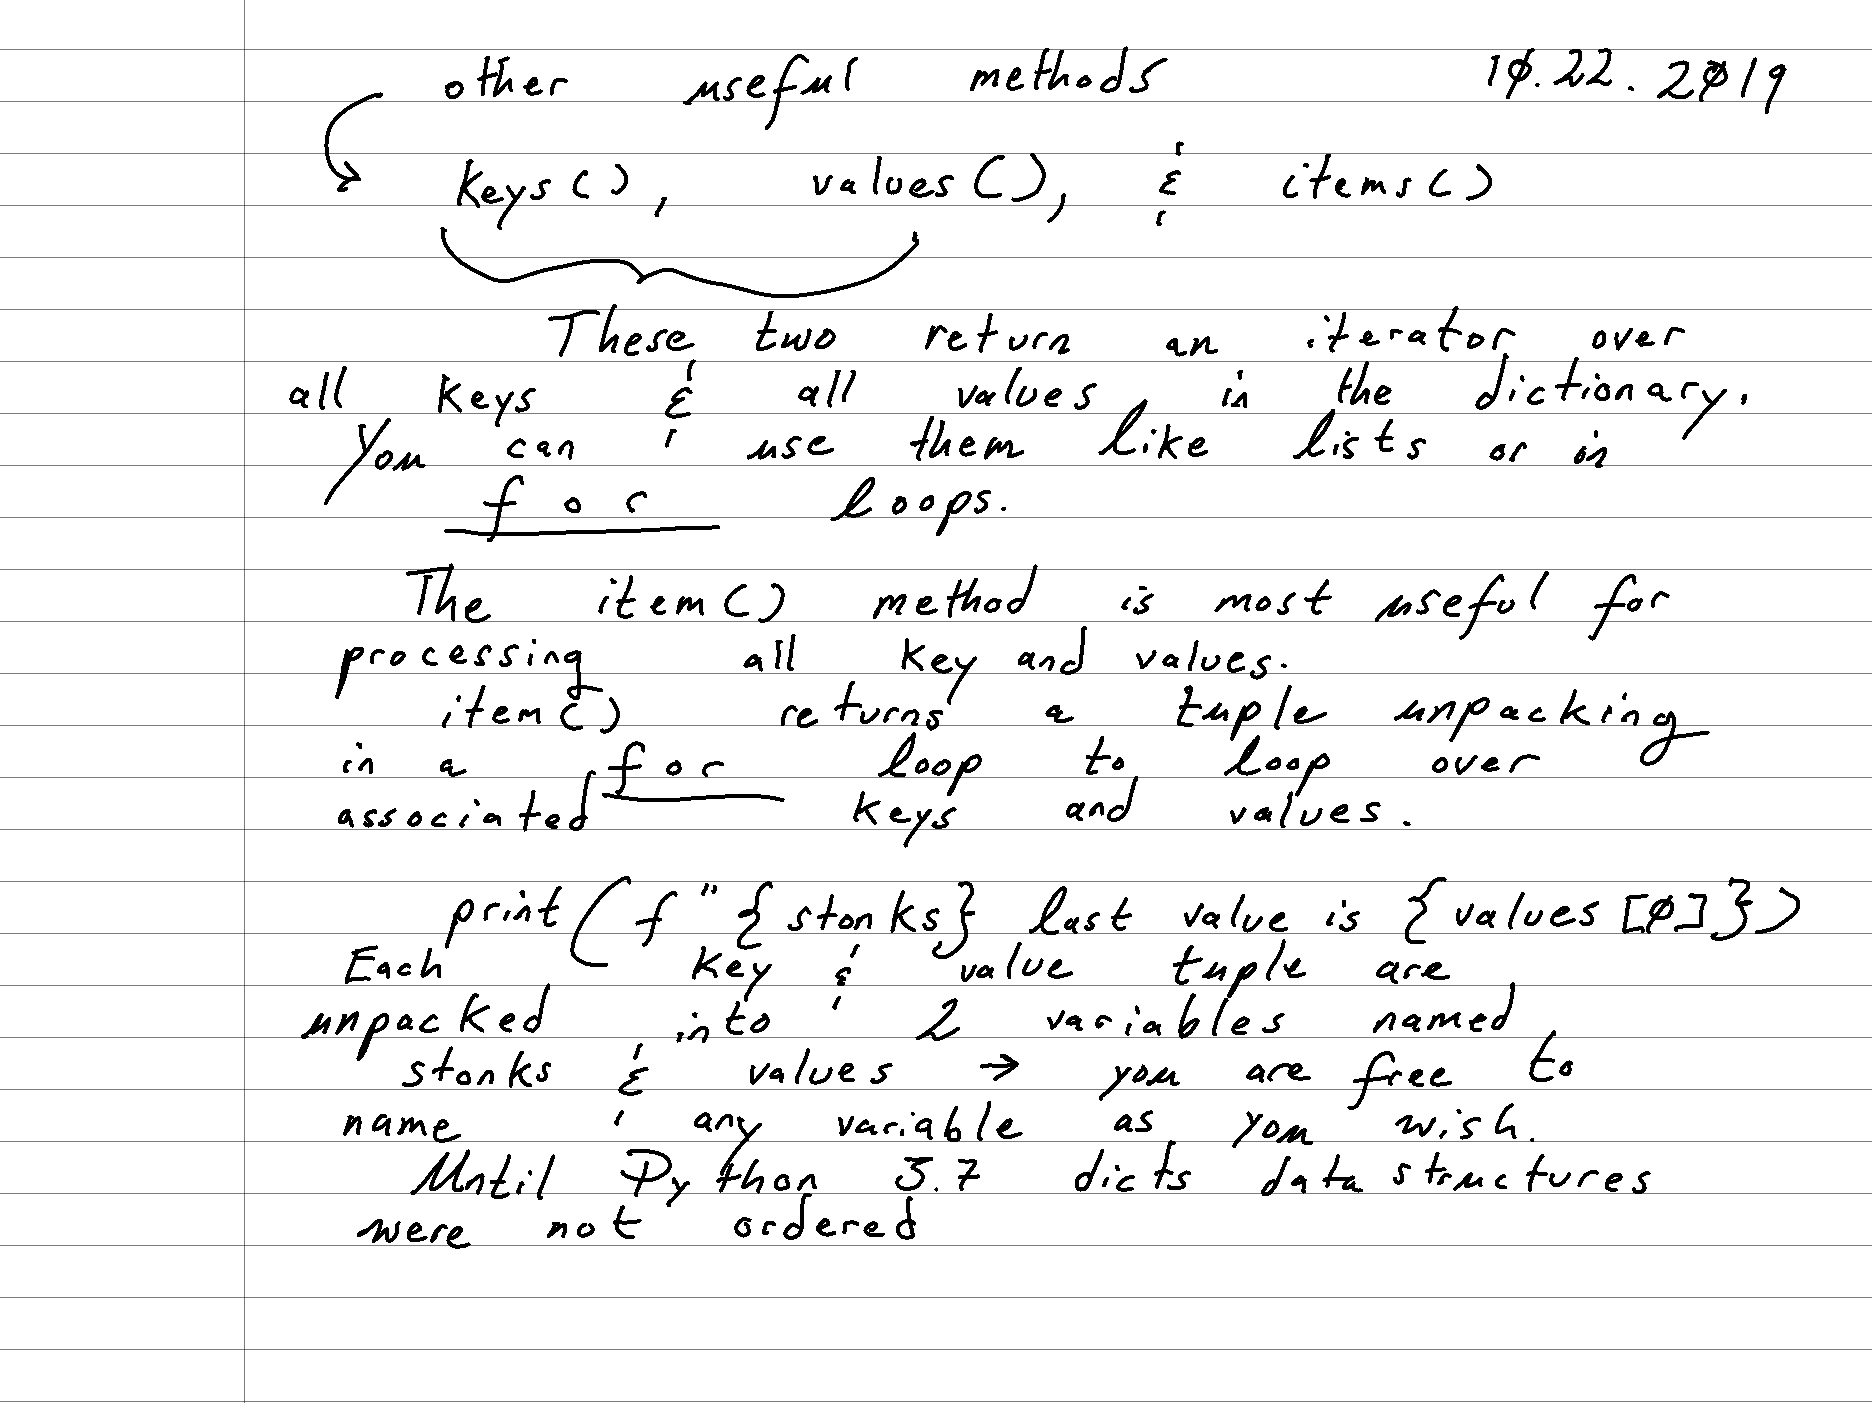 other useful methods 10.22.2019
keys(), values(), & items()
These two return an iterator over
all keys & all values in the dictionary.
You can use them like lists or in
for loops.
The item() method is most useful for
processing all key and values.
item() returns a tuple unpacking
in a for loop to loop over
associated keys and values.
print(f"{stonks} last value is {values[0]})
Each key & value tuple are
unpacked into 2 variables named
stonks & values → you are free to
name any variable as you wish.
Until Python 3.7 dicts data structures
were not ordered